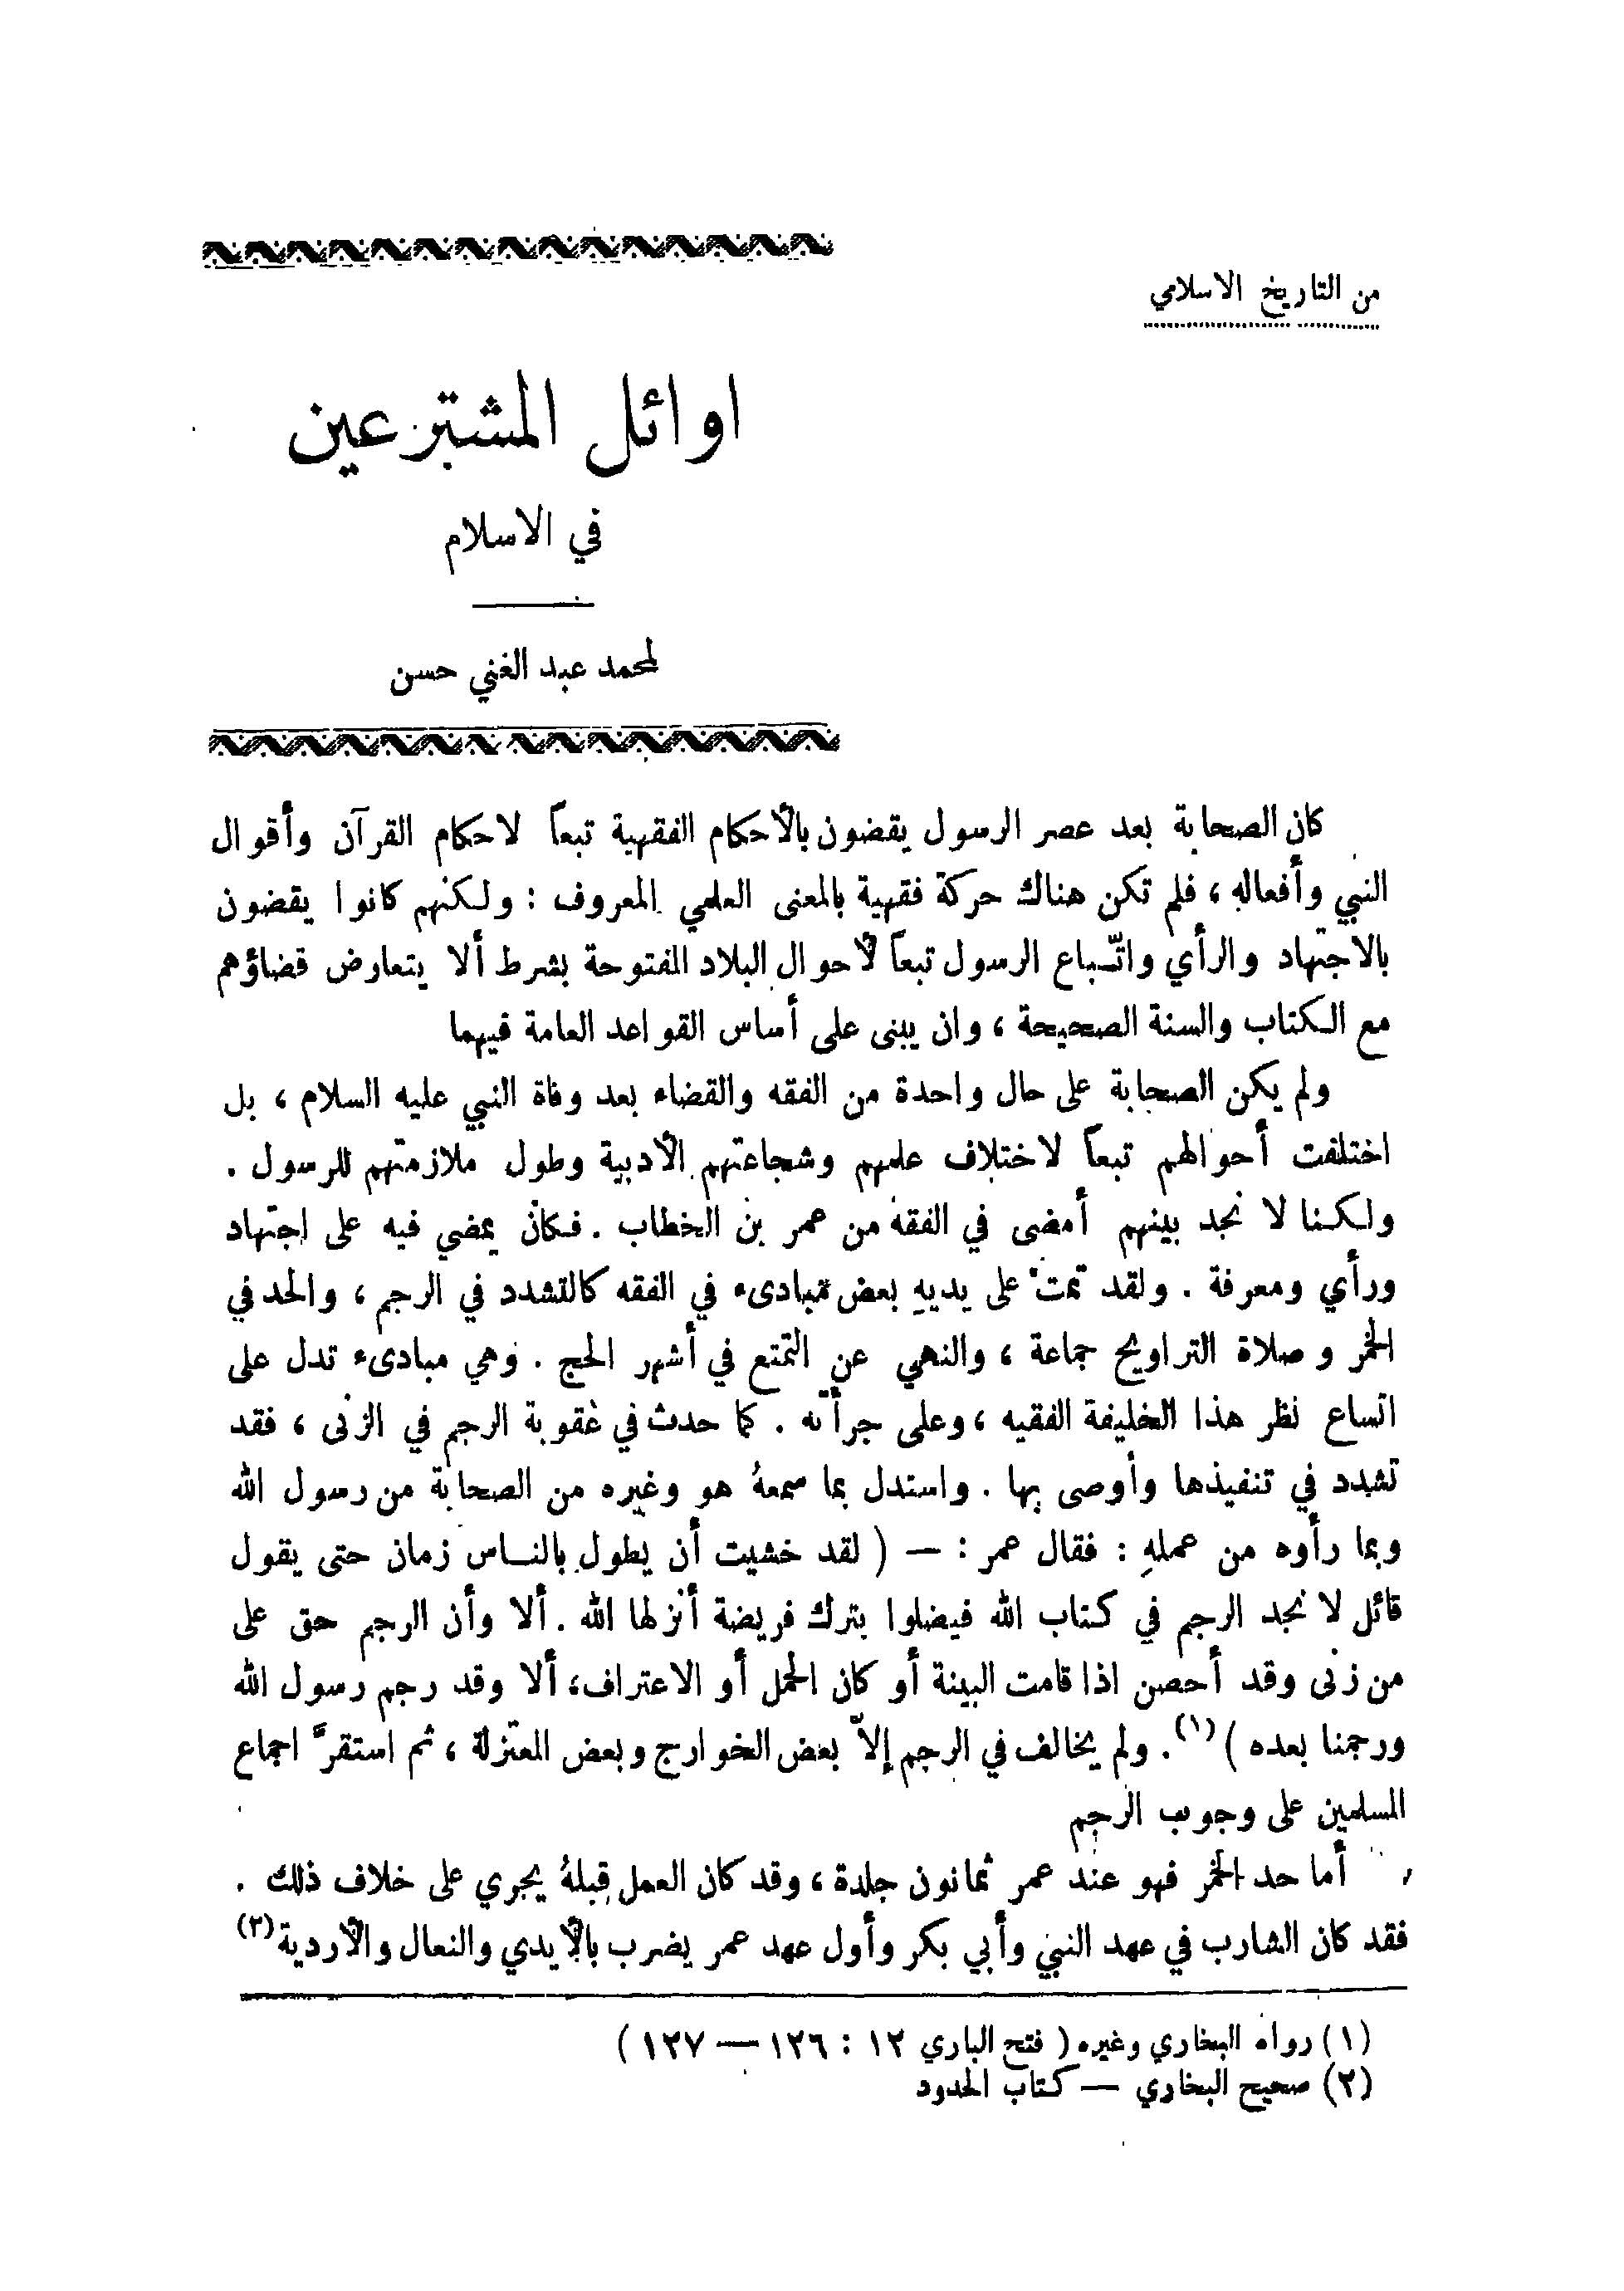 من التاريخ الاسلامي
اوائل المشترعين
في الاسلام
لمحمد عبد الغني حسن
كان الصحابة بعد عصر الرسول يقضون بالأحكام الفقهية تبعاً لاحكام القرآن وأقوال
النبي وأفعاله ، فلم تكن هناك حركة فقهية بالمعنى العلمي المعروف : ولكنهم كانوا يقضون
بالاجتهاد والرأي واتّباع الرسول تبعاً لأحوال البلاد المفتوحة بشرط ألا يتعارض قضاؤهم
مع الكتاب والسنة الصحيحة ، وان يبنى على أساس القواعد العامة فيهما
ولم يكن الصحابة على حال واحدة من الفقه والقضاء بعد وفاة النبي عليه السلام ، بل
اختلفت أحوالهم تبعاً لاختلاف علمهم وشجاعتهم الأدبية وطول ملازمتهم للرسول .
ولكنا لا نجد بينهم أمضى في الفقه من عمر بن الخطاب . فكان يمضي فيه على اجتهاد
ورأي ومعرفة . ولقد تمت على يديهِ بعض مبادىء في الفقه كالتشدد في الرجم ، والحد في
الخمر وصلاة التراويح جماعة ، والنهي عن التمتع في أشهر الحج . وهي مبادىء تدل على
اتساع نظر هذا الخليفة الفقيه ، وعلى جرأته . كما حدث في عقوبة الرجم في الزنى ، فقد
تشدد في تنفيذها وأوصى بها . واستدل بما سمعهُ هو وغيره من الصحابة من رسول الله
وبما رأوه من عملهِ : فقال عمر : — ( لقد خشيت أن يطول بالناس زمان حتى يقول
قائل لا نجد الرجم في كتاب الله فيضلوا بترك فريضة أنزلها الله . ألا وأن الرجم حق على
من زنى وقد أحصن اذا قامت البينة أو كان الحمل أو الاعتراف ، ألا وقد رجم رسول الله
ورجمنا بعده ) (١) . ولم يخالف في الرجم إلاّ بعض الخوارج وبعض المعتزلة ، ثم استقرَّ اجماع
المسلمين على وجوب الرجم
أما حد الخمر فهو عند عمر ثمانون جلدة ، وقد كان العمل قبلهُ يجري على خلاف ذلك .
فقد كان الشارب في عهد النبي وأبي بكر وأول عهد عمر يضرب بالأيدي والنعال والأردية (٢)
(١) رواه البخاري وغيره ( فتح الباري ١٢ : ١٢٦ — ١٢٧ )
(٢) صحيح البخاري — كتاب الحدود